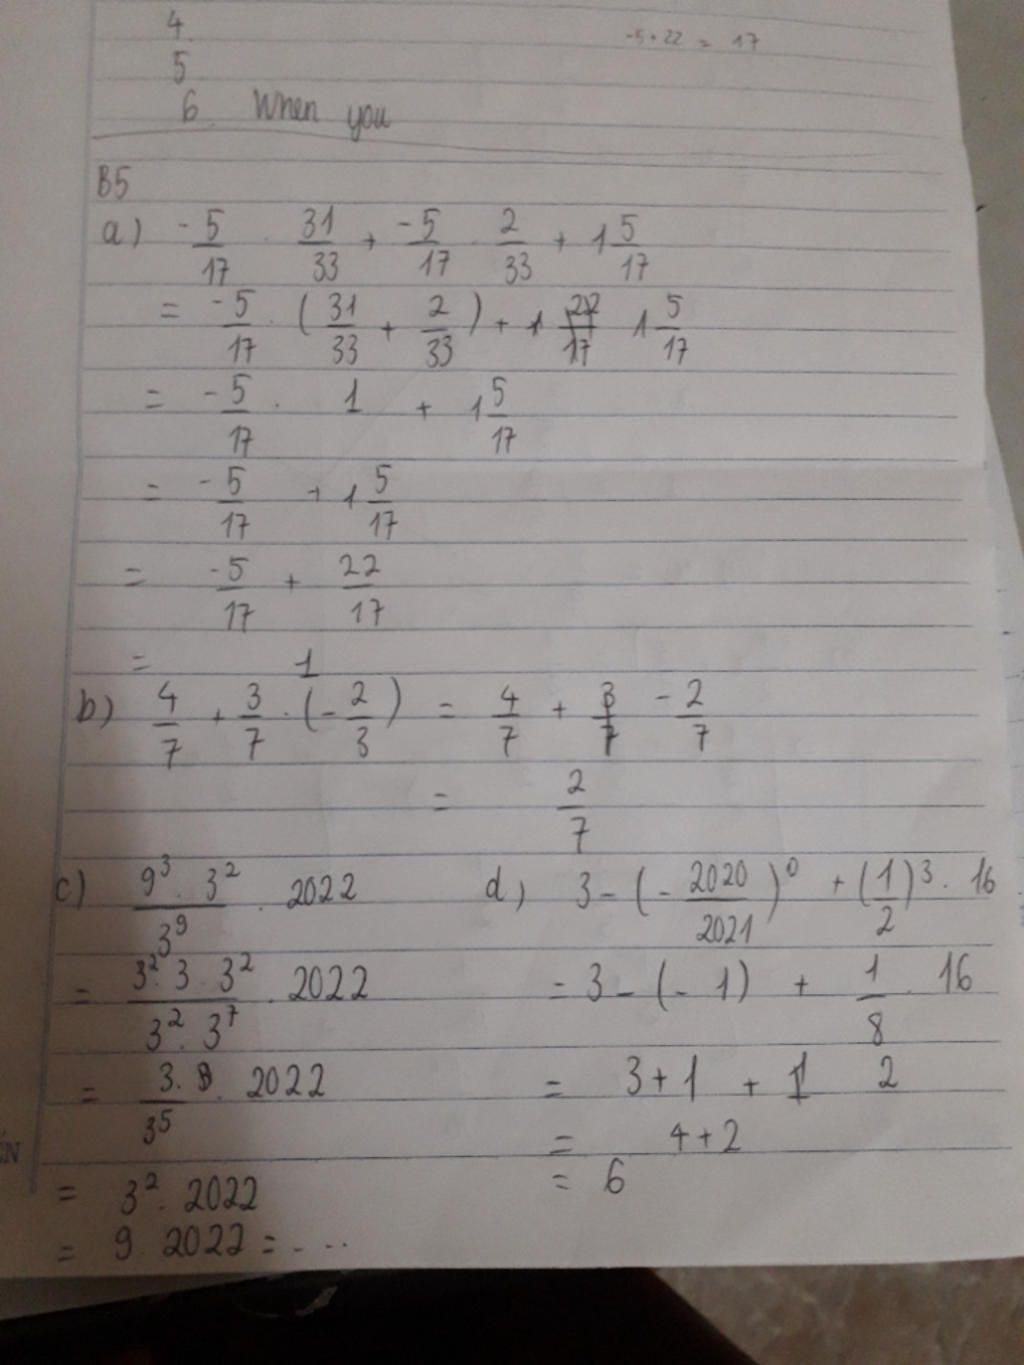 4
-5+22 = 17
5
6 When you
B5
a) -5/17 . 31/33 + -5/17 . 2/33 + 1 5/17
= -5/17 . (31/33 + 2/33) + 1 5/17
= -5/17 . 1 + 1 5/17
= -5/17 + 1 5/17
= -5/17 + 22/17
= 1
b) 4/7 + 3/7 . (-2/3) = 4/7 + -2/7
= 2/7
c) 9³ . 3²/3⁹ . 2022
= 3² . 3 . 3²/3² . 3⁷ . 2022
= 3 . /3⁵ 2022
= 3² . 2022
= 9 . 2022 = ....
d) 3 - (-2020/2021)⁰ + (1/2)³ . 16
= 3 - (-1) + 1/8 . 16
= 3 + 1 + 2
= 4 + 2
= 6